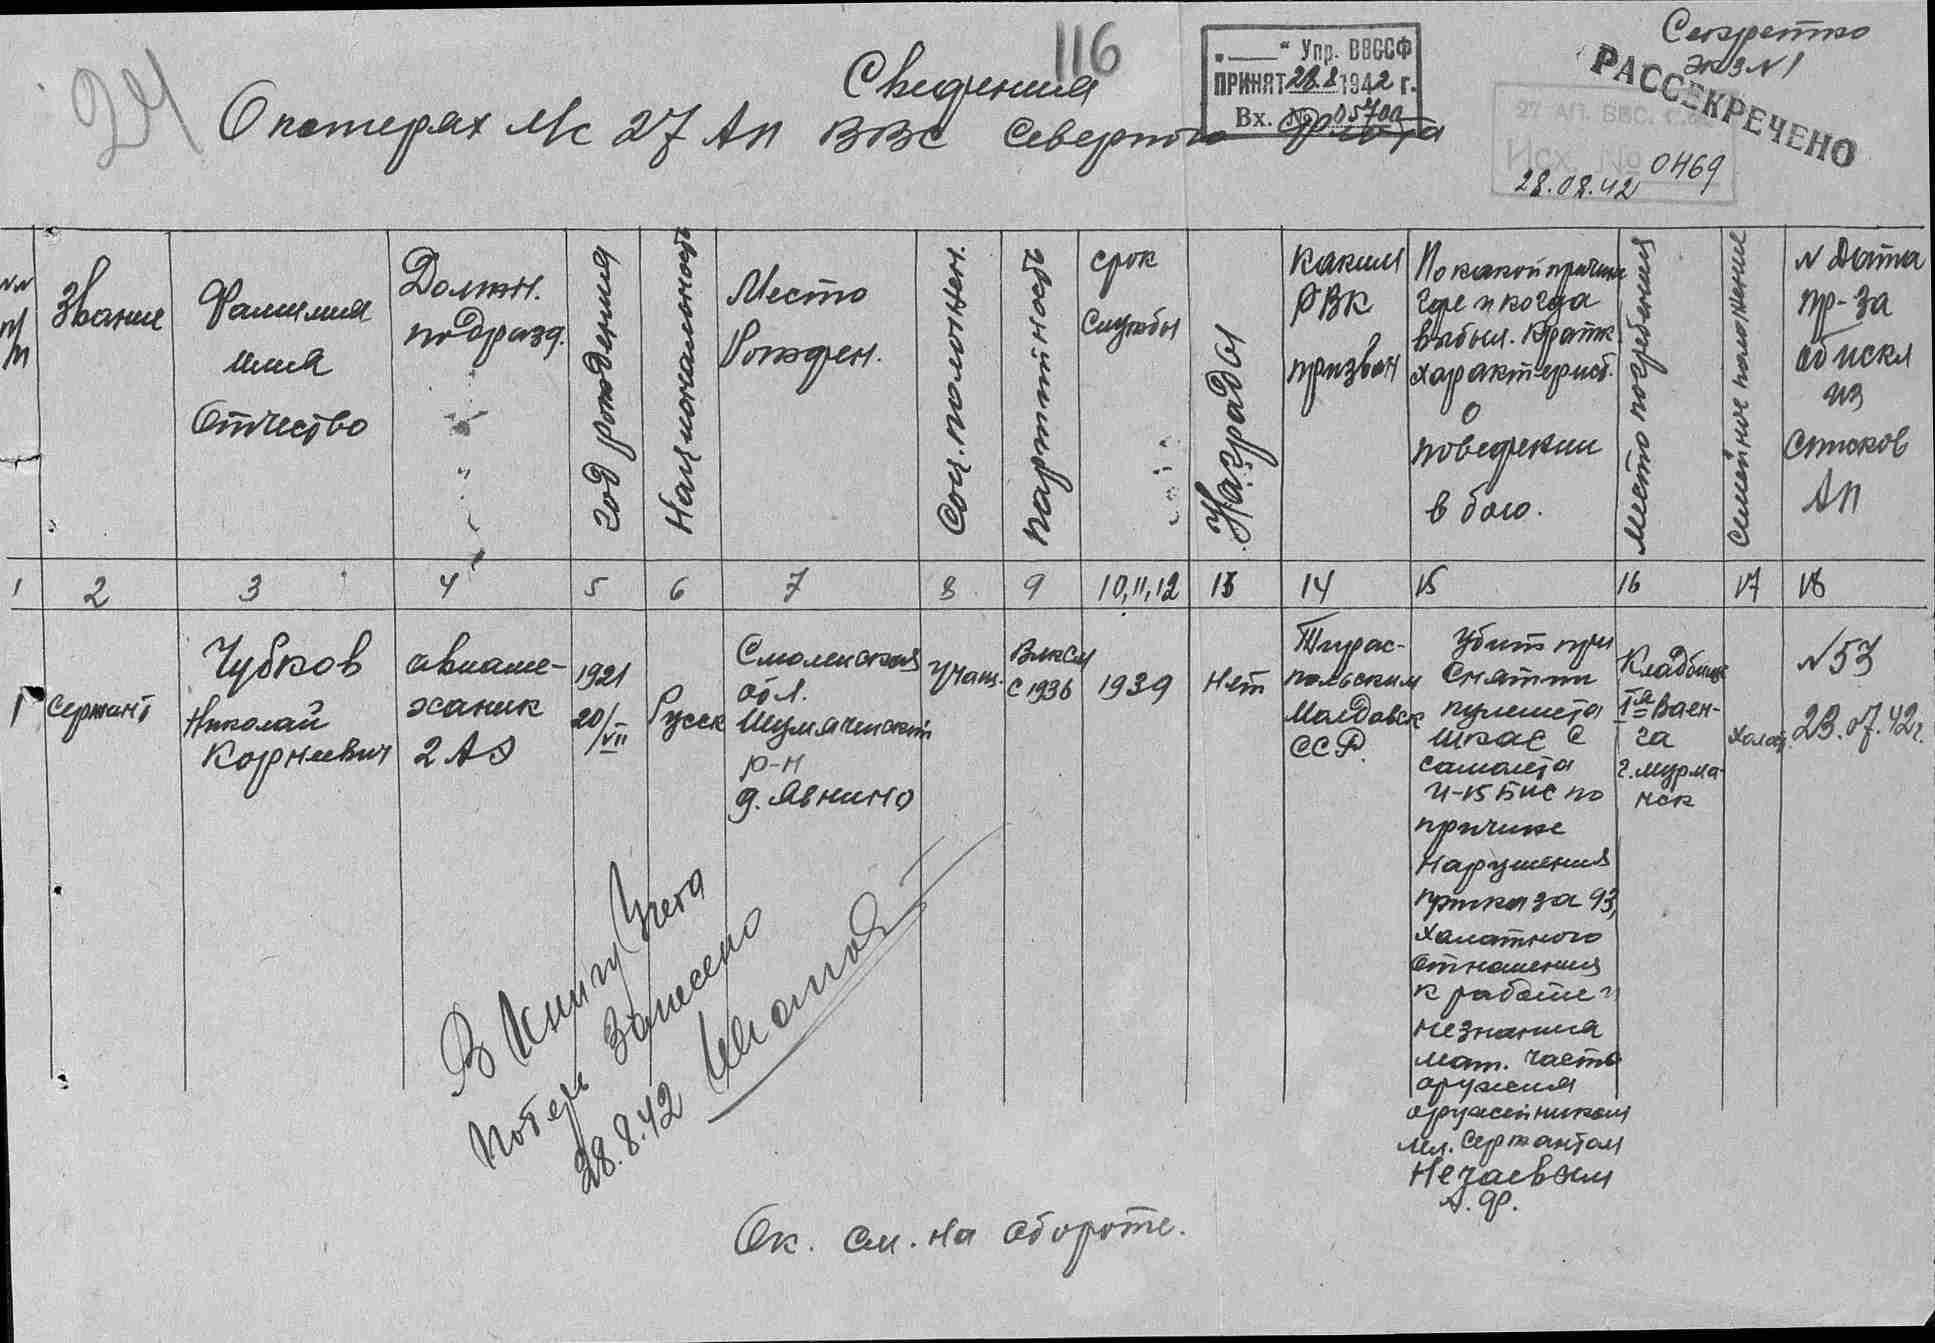 116
24
Секретно
экз N 1
РАССЕКРЕЧЕНО
„ “ Упр. ВВССФ
ПРИНЯТ 28.8 1942 г.
Вх. № 05700
27 АП. ВВС. С.Ф.
Исх. № 0469
28.08.42
Сведения
О потерях м/с 27 АП ВВС Северного Флота
NN
п/
п
Звание
Фамилия
имя
Отчество
Должн.
подразд.
год рождения
Национальность
Место
Рожден.
Соц. положен.
партийность
срок
службы
Награды
каким
РВК
призван
По какой причине
где и когда
выбыл. Кратк.
характерист.
о
поведении
в бою.
место погребения
Семейное положение
N Дата
пр-за
об искл
из
списков
АП
1
2
3
4
5
6
7
8
9
10, 11, 12
13
14
15
16
17
18
1
Сержант
Чубков
Николай
Корнеевич
авиаме-
ханик
2 АЭ
1921
20/VII
Русск
Смоленская
обл.
Шумячинский
р-н
д. Явнино
учащ.
ВЛКСМ
с 1936
1939
Нет
Тирас-
польским
Молдавск
ССР.
Убит при
снятии
пулемета
ШКАС с
самолета
И-15 Бис по
причине
нарушения
приказа 93,
халатного
отношения
к работе и
незнания
мат. часть
оружия
оружейником
мл. сержантом
Нечаевым
А. Ф.
Кладбище
1ая Ваен-
га
г. Мурма-
нск
Холос.
N 53
23.07.42г.
В Книгу Учета
Потерь Занесено
28.8.42
Ок. см. на обороте.